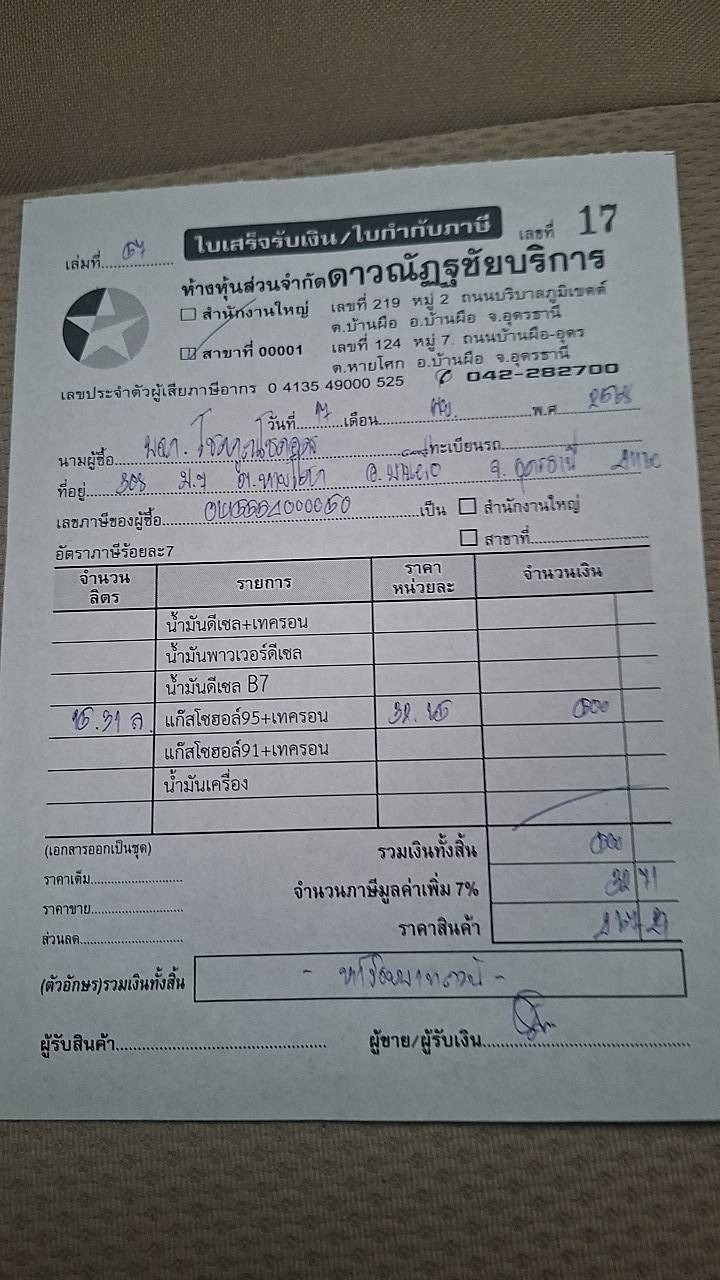 เล่มที่ 67 ใบเสร็จรับเงิน/ใบกำกับภาษี เลขที่ 17
ห้างหุ้นส่วนจำกัดดาวณัฏฐชัยบริการ
สำนักงานใหญ่ เลขที่ 219 หมู่ 2 ถนนบริบาลภูมิเขตต์
ต.บ้านผือ อ.บ้านผือ จ.อุดรธานี
สาขาที่ 00001 เลขที่ 124 หมู่ 7 ถนนบ้านผือ-อุดร
ต.หายโศก อ.บ้านผือ จ.อุดรธานี
เลขประจำตัวผู้เสียภาษีอากร 0 4135 49000 525 ✆ 042-282700
วันที่ 17 เดือน พ.ศ. 2568
นามผู้ซื้อ ทะเบียนรถ
ที่อยู่ 308 ต.หายโศก อ.บ้านผือ จ.อุดรธานี
เลขภาษีของผู้ซื้อ เป็น สำนักงานใหญ่
อัตราภาษีร้อยละ7 สาขาที่
จำนวน ลิตร รายการ ราคา หน่วยละ จำนวนเงิน
น้ำมันดีเซล+เทครอน
น้ำมันพาวเวอร์ดีเซล
น้ำมันดีเซล B7
แก๊สโซฮอล์95+เทครอน 500
แก๊สโซฮอล์91+เทครอน
น้ำมันเครื่อง
(เอกสารออกเป็นชุด) รวมเงินทั้งสิ้น 500
ราคาเต็ม จำนวนภาษีมูลค่าเพิ่ม 7% 32 71
ราคาขาย ราคาสินค้า 467 29
ส่วนลด
(ตัวอักษร)รวมเงินทั้งสิ้น - ห้าร้อยบาทถ้วน -
ผู้รับสินค้า ผู้ขาย/ผู้รับเงิน